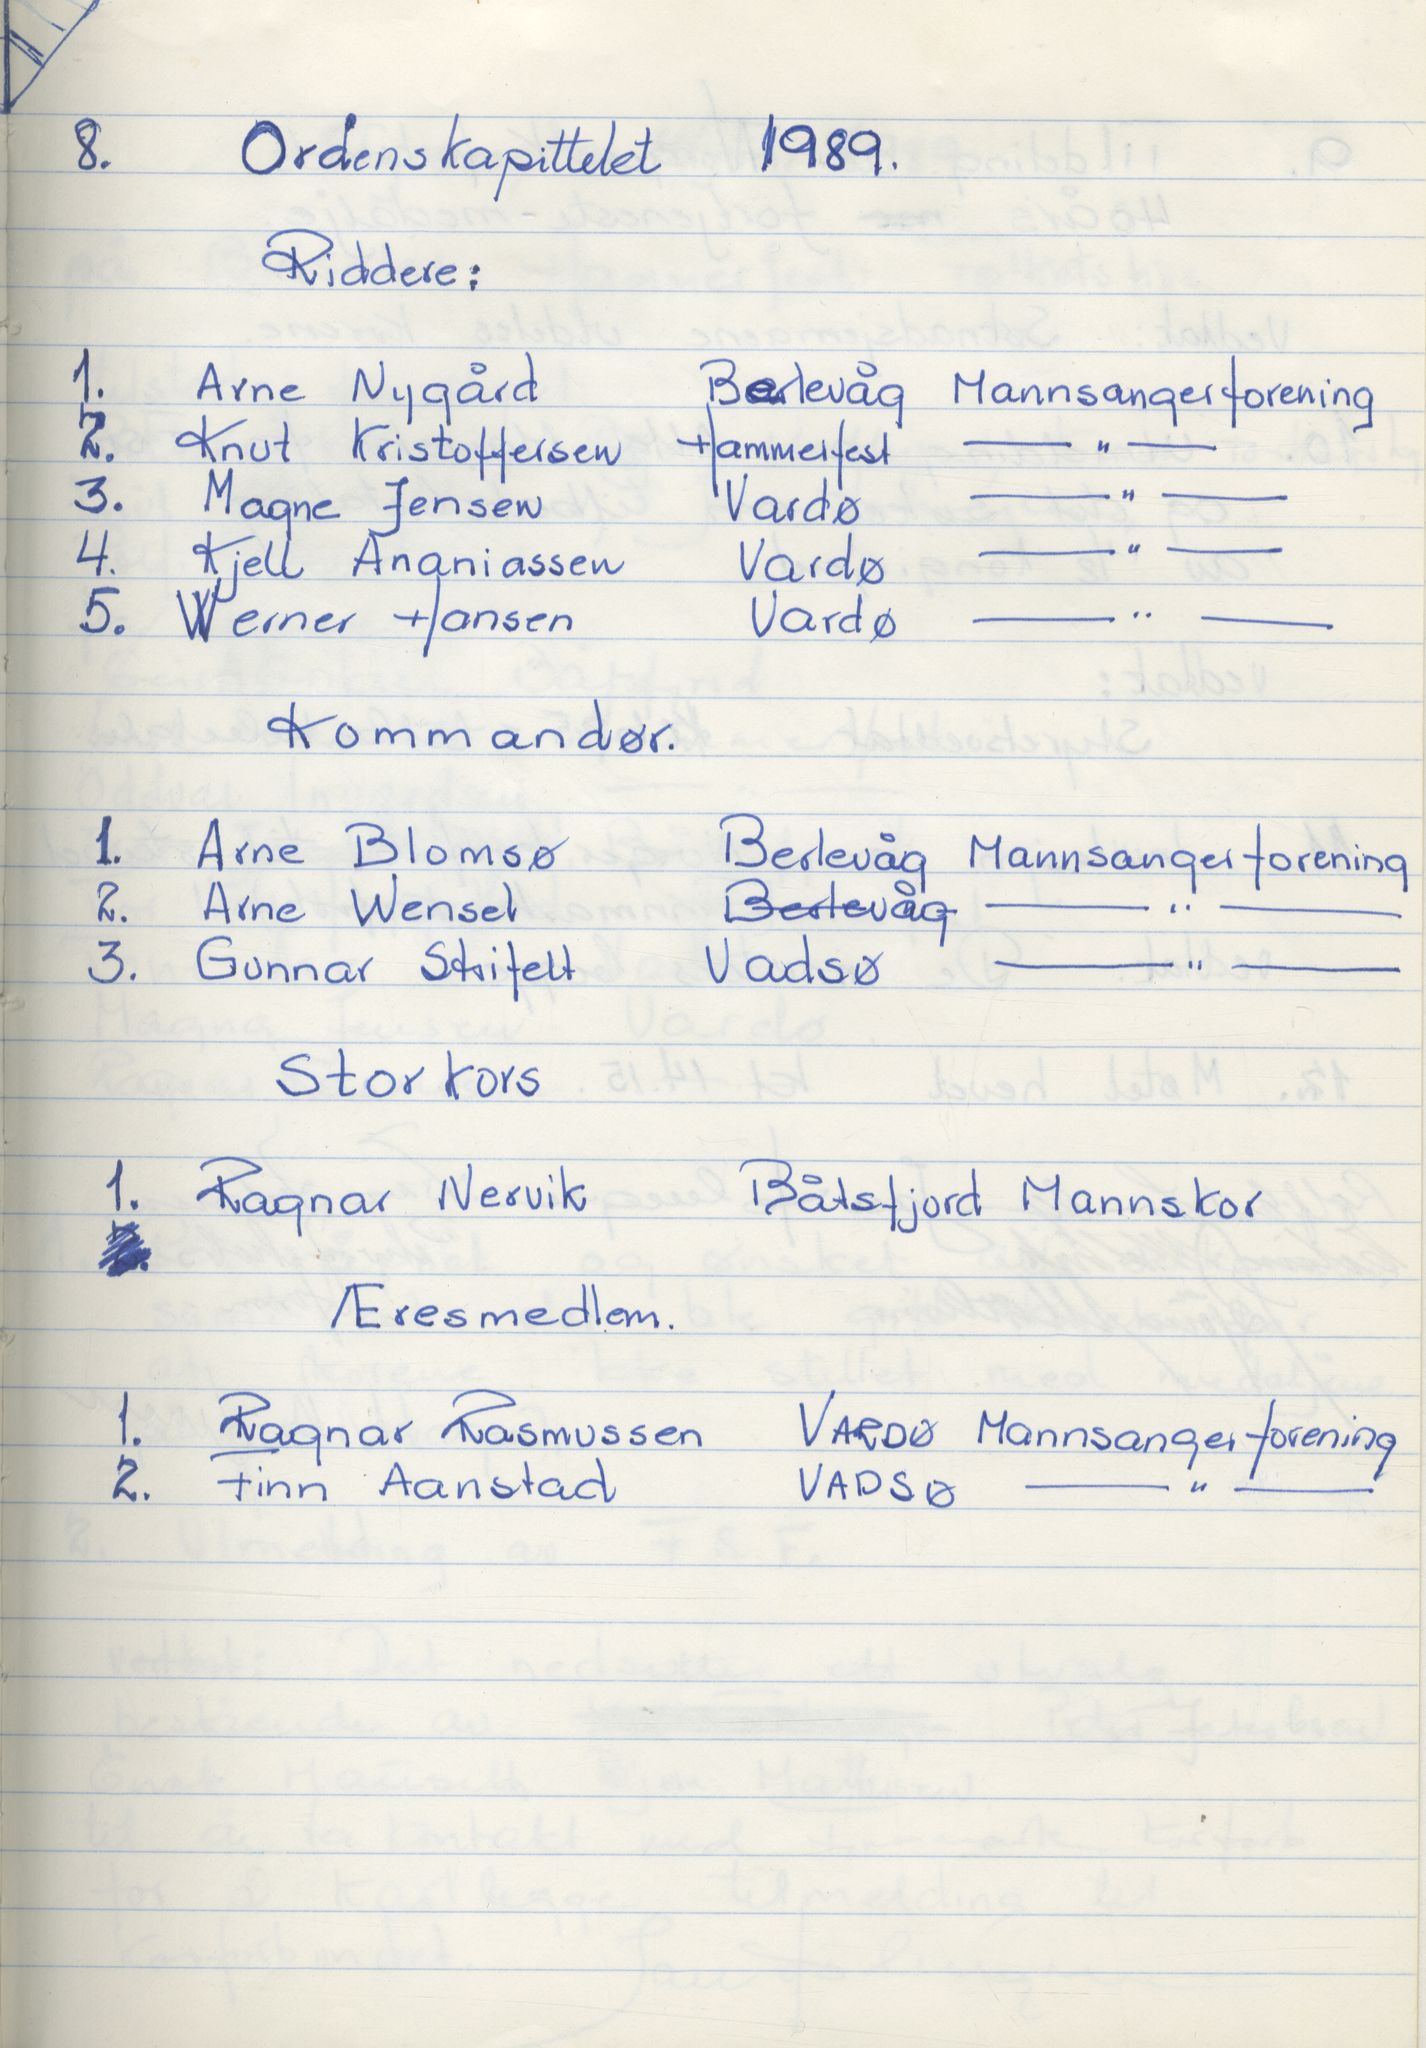 8. Ordenskapittelet 1989.
Riddere:
1. Arne Nygård Berlevåg Mannsangerforening
2. Knut Kristoffersen Hammerfest — " —
3. Magne Jensen Vardø — " —
4. Kjell Ananiassen Vardø — " —
5. Werner Hansen Vardø — " —
Kommandør.
1. Arne Blomsø Berlevåg Mannsangerforening
2. Arne Wensel Berlevåg — " —
3. Gunnar Strifelt Vadsø — " —
Storkors
1. Ragnar Nervik Båtsfjord Mannskor
Æresmedlem.
1. Ragnar Rasmussen VARDØ Mannsangerforening
2. Finn Aanstad VADSØ — " —